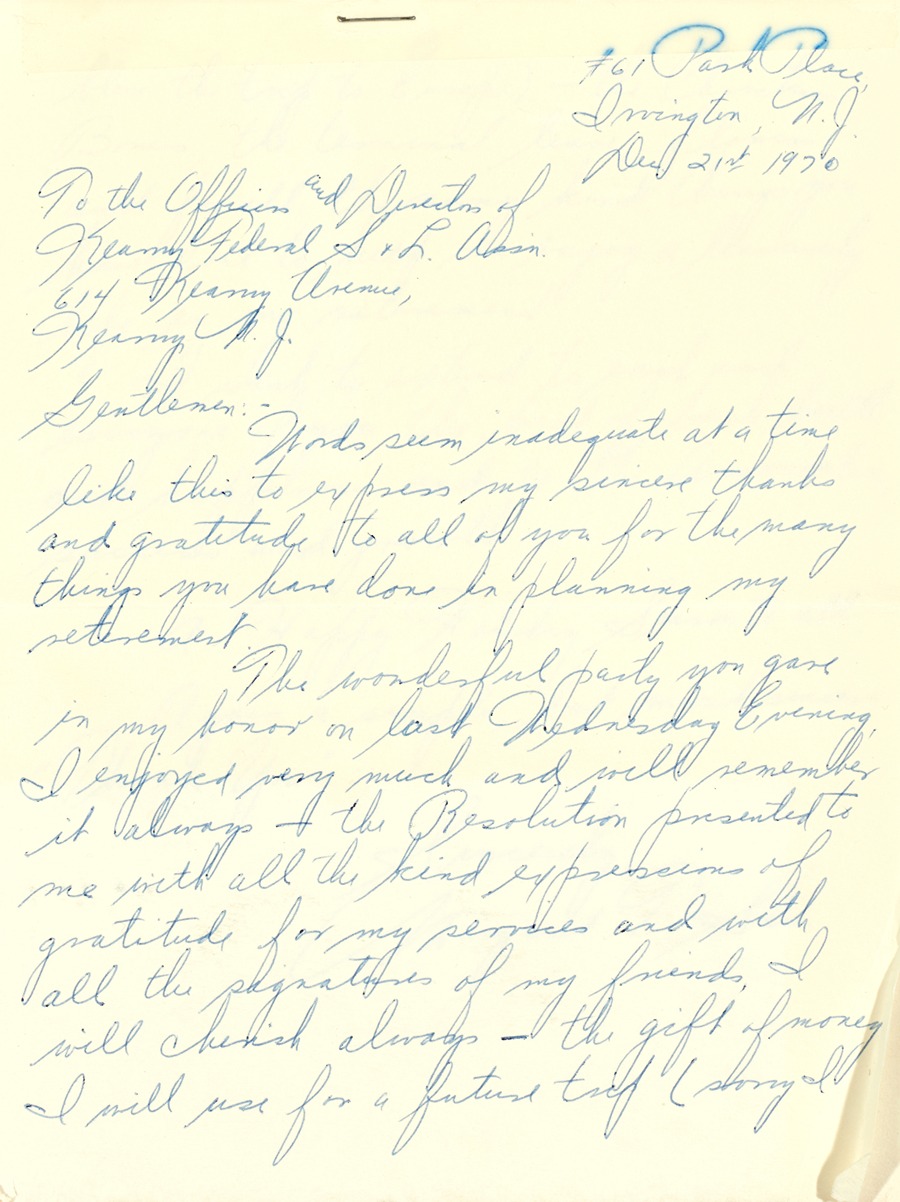 #61 Park Place,
Irvington, N.J.
Dec 21st 1970
To the Officers and Directors of
Kearny Federal S & L. Assn.
614 Kearny Avenue,
Kearny N. J.
Gentlemen:-
Words seem inadequate at a time
like this to express my sincere thanks
and gratitude to all of you for the many
things you have done in planning my
retirement.
The wonderful party you gave
in my honor on last Wednesday Evening,
I enjoyed very much and will remember
it always - the Resolution presented to
me with all the kind expressions of
gratitude for my services and with
all the signatures of my friends, I
will cherish always - the gift of money
I will use for a future trip (sorry I